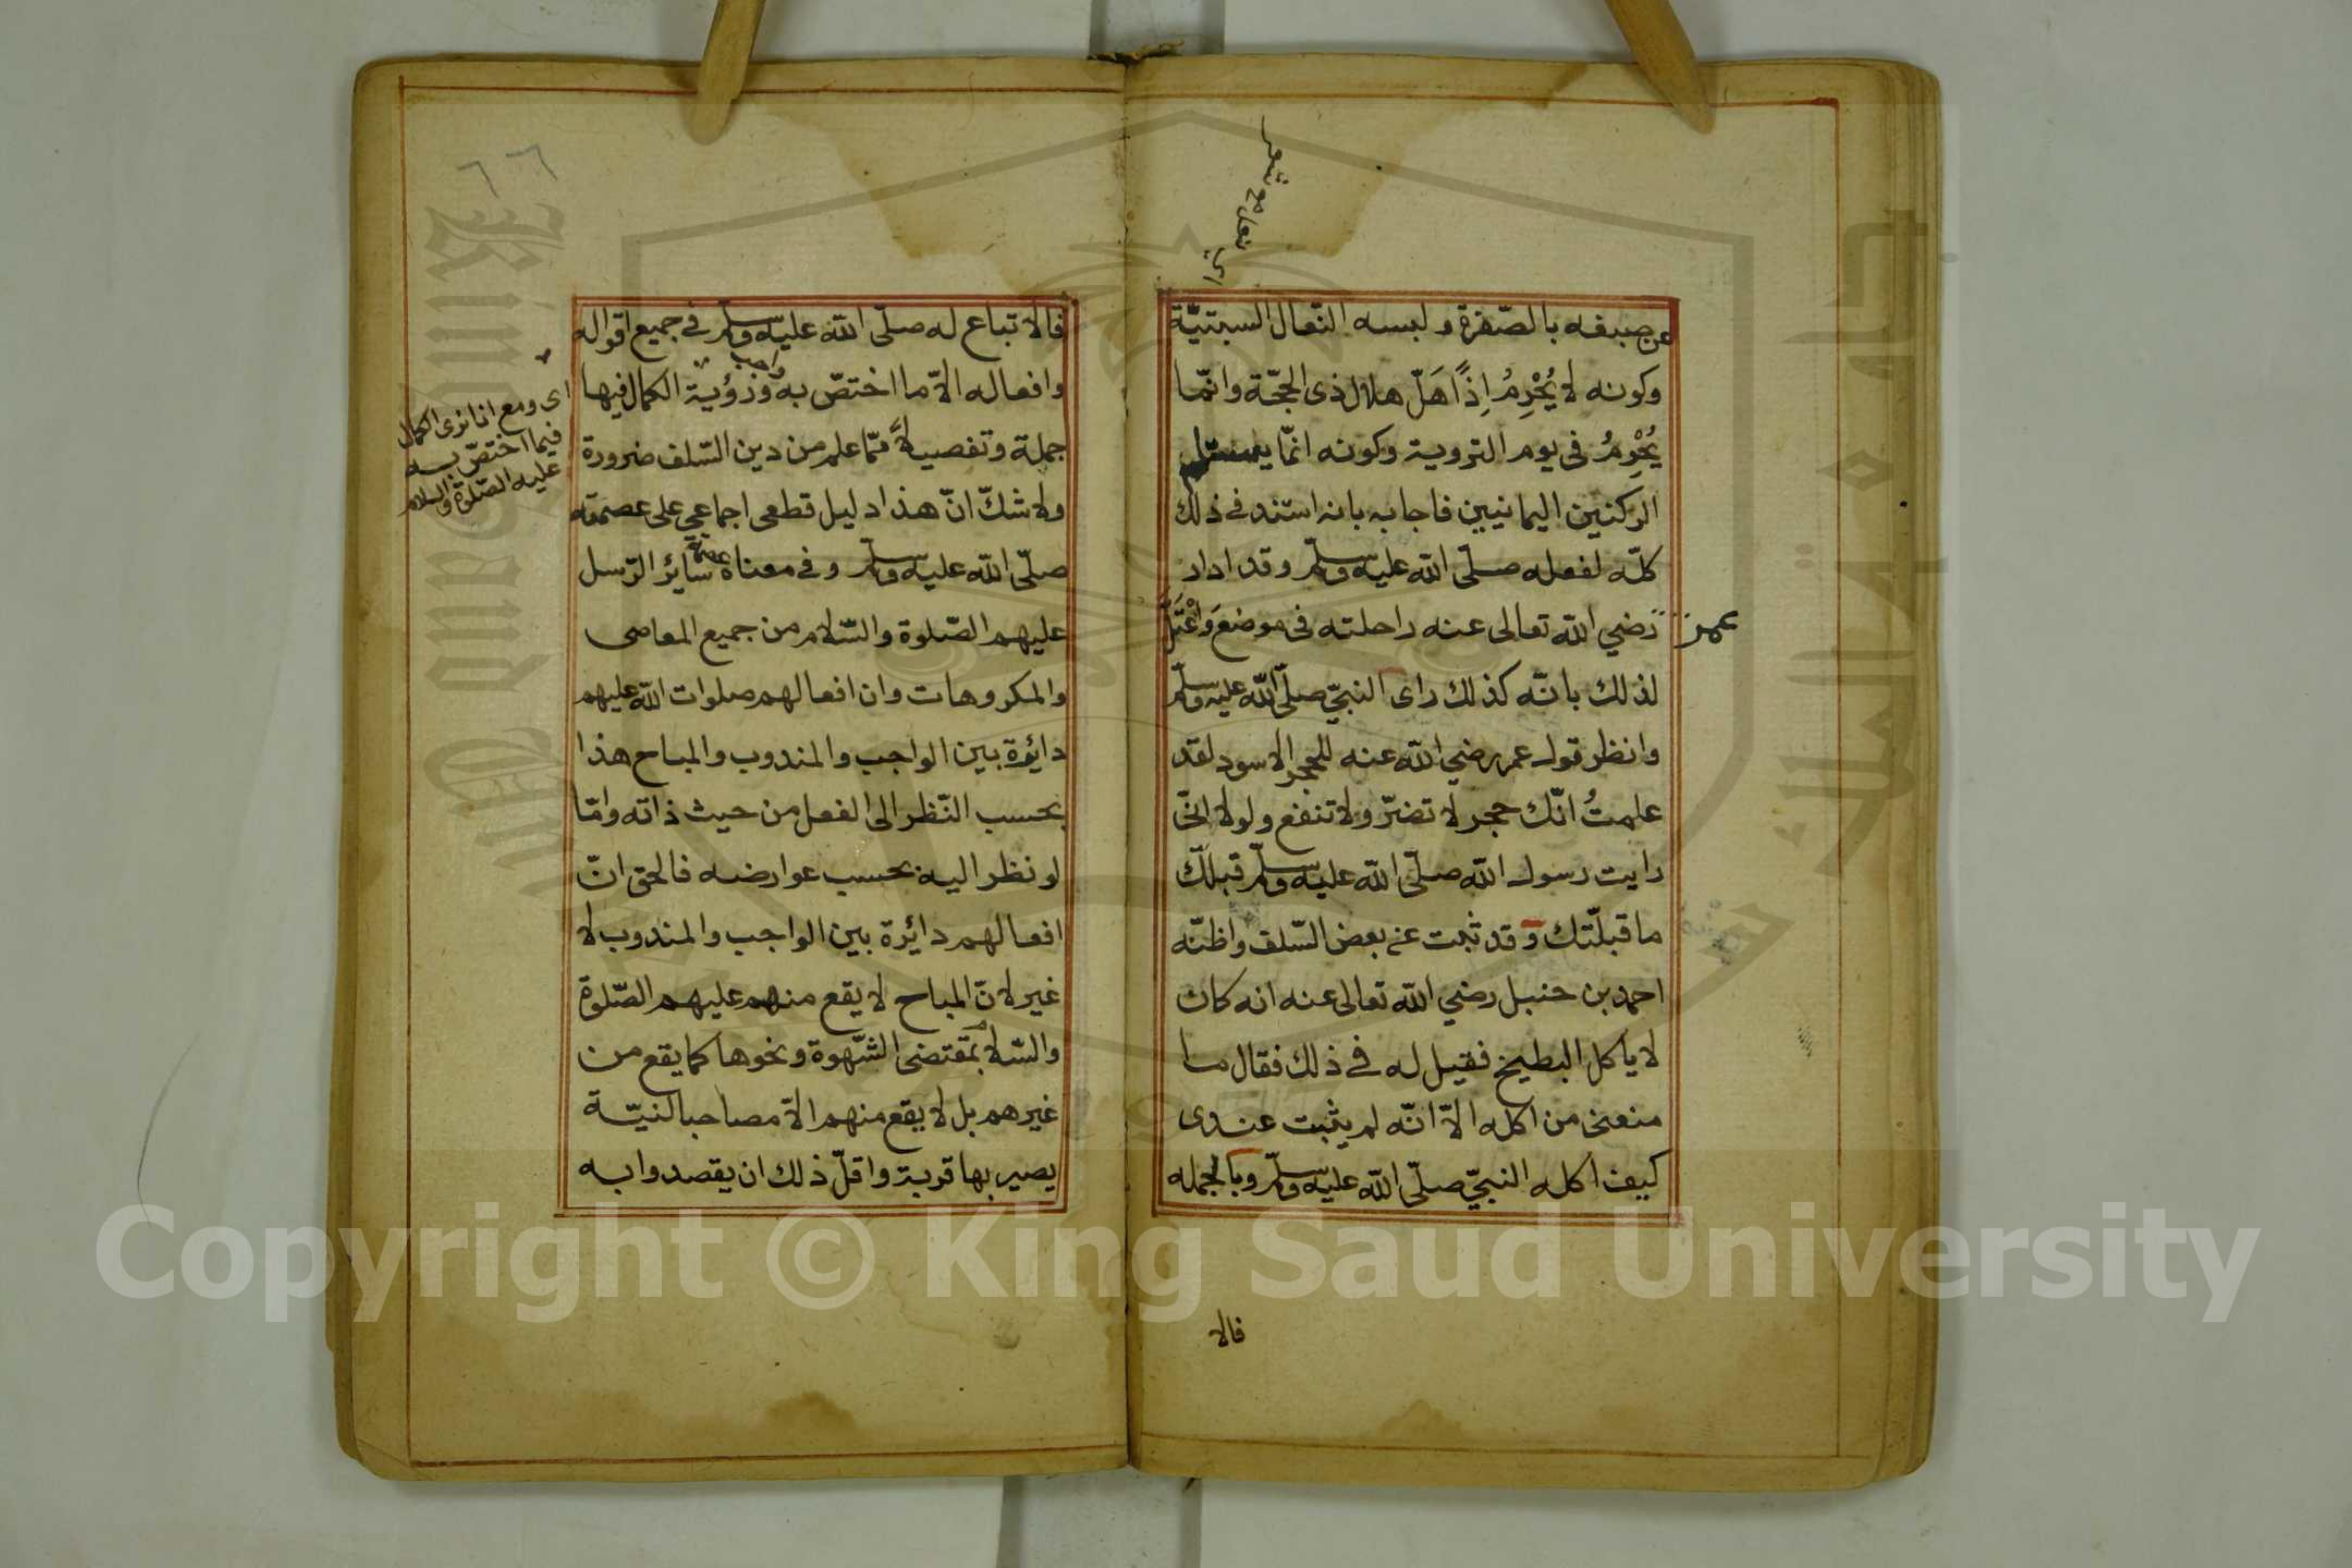 عن صبغه بالصّفرة ولبسه النّعال السبتيّة
وكونه لا يُحْرِمُ اِذًا هَلّ هلال ذى الحجّة وانّما
يُحْرِمُ فى يوم التروية وكونه انّما يستلم
الركنين اليمانيين فاجابه بانه استند في ذلك
كلّه لفعله صلّى الله عليه وسلّم وقد ادار
عمر
رضي الله تعالى عنه راحلته فى موضع وَاعْتَلّ
لذلك بانّه كذلك راى النبيّ صلّى الله عليه وسلّم
وانظر قول عمر رضي الله عنه للحجر الاسود لقد
علمتُ انّك حجر لا تضرّ ولا تنفع ولولا انّى
رايت رسول الله صلّى الله عليه وسلّم قبلّك
ما قبلّتك وقد ثبت عن بعض السّلف واظنّه
احمد بن حنبل رضي الله تعالى عنه انه كان
لا ياكل البطيخ فقيل له في ذلك فقال ما
منعنى من اكله الّا انّه لم يثبت عندى
كيف اكله النبيّ صلّى الله عليه وسلّم وبالجمله
فالا
اى نعال مع شعر
٦٦
فالاتباع له صلّى الله عليه وسلّم في جميع اقواله
وافعاله الّا ما اختصّ به ورؤية الكمال فيها
جملة وتفصيلاً ممّا علم من دين السّلف ضرورة
ولا شكّ انّ هذا دليل قطعى اجماعي على عصمته
صلّى الله عليه وسلّم وفي معناه عصمة سائر الرّسل
عليهم الصّلوة والسّلام من جميع المعاصى
والمكروهات وان افعالهم صلوات الله عليهم
دائرة بين الواجب والمندوب والمباح هذا
بحسب النّظر الى الفعل من حيث ذاته وامّا
لو نظر اليه بحسب عوارضه فالحق انّ
افعالهم دائرة بين الواجب والمندوب لا
غير لانّ المباح لا يقع منهم عليهم الصّلوة
والسّلام بمقتضى الشّهوة ونحوها كما يقع من
غيرهم بل لا يقع منهم الّا مصاحبا لنيّة
يصير بها قربة واقلّ ذلك ان يقصدوا به
اى ومع انا نرى الكمال
فيما اختصّ به
عليه الصّلوة والسلام
Copyright © King Saud University